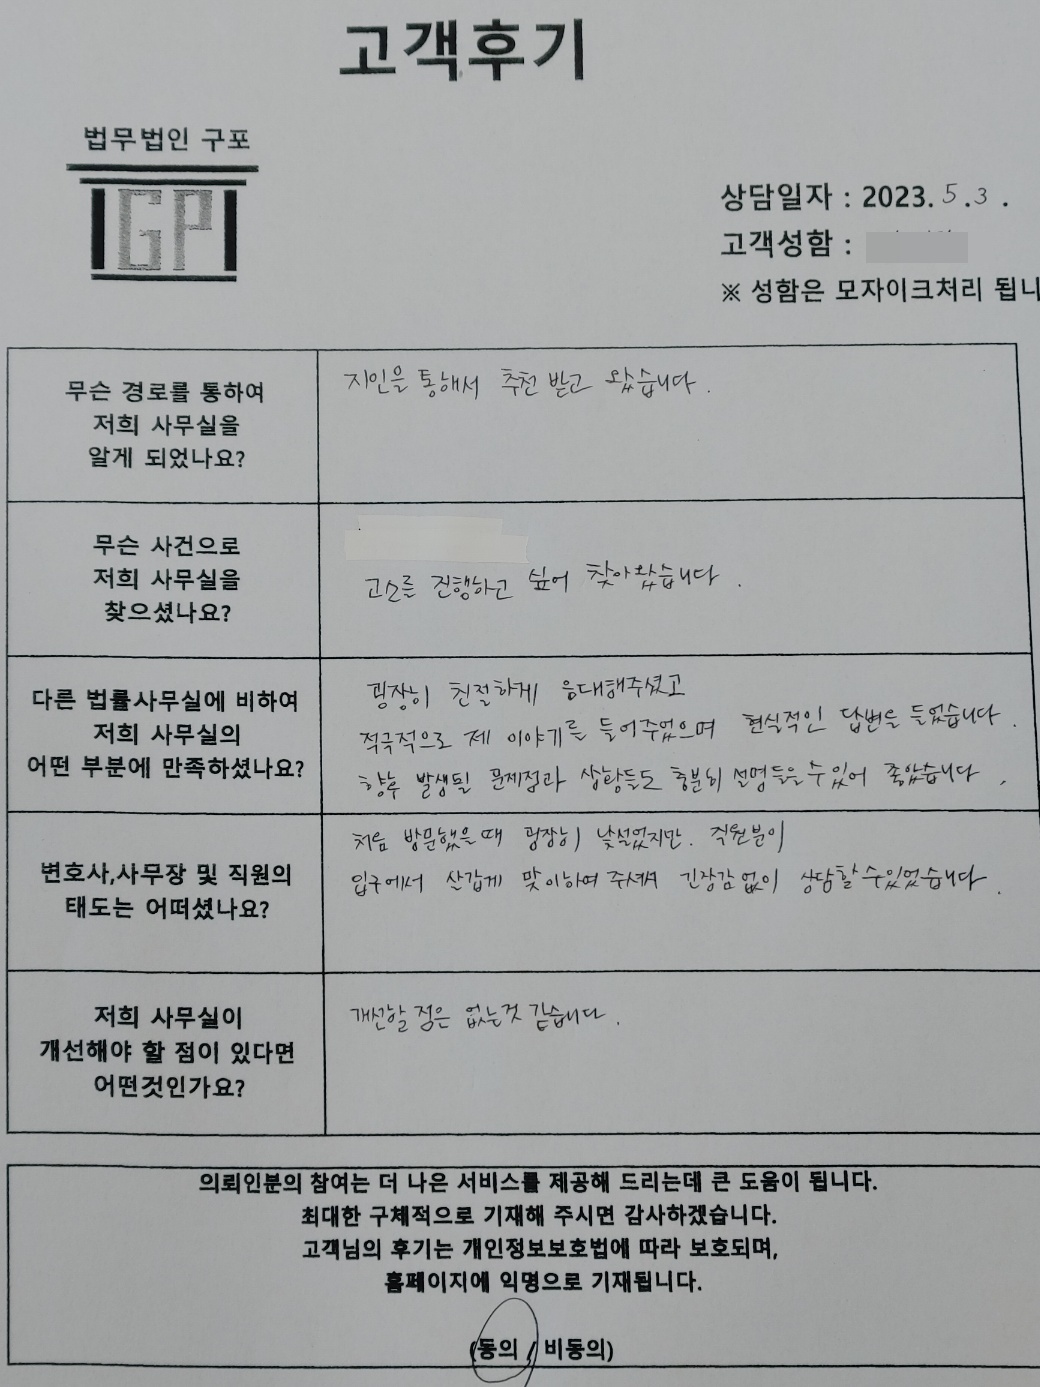 고객후기
법무법인 구포
GP
상담일자 : 2023. 5 .3 .
고객성함 :
※ 성함은 모자이크처리 됩니
무슨 경로를 통하여
저희 사무실을
알게 되었나요?
지인을 통해서 추천 받고 왔습니다.
무슨 사건으로
저희 사무실을
찾으셨나요?
고소를 진행하고 싶어 찾아왔습니다.
다른 법률사무실에 비하여
저희 사무실의
어떤 부분에 만족하셨나요?
굉장히 친절하게 응대해주셨고
적극적으로 제 이야기를 들어주었으며 현실적인 답변을 들었습니다.
향후 발생될 문제점과 상황들도 충분히 설명들을수있어 좋았습니다.
변호사,사무장 및 직원의
태도는 어떠셨나요?
처음 방문했을때 굉장히 낯설었지만. 직원분이
입구에서 살갑게 맞이하여주셔서 긴장감없이 상담할수있었습니다.
저희 사무실이
개선해야 할 점이 있다면
어떤것인가요?
개선할점은 없는것 같습니다.
의뢰인분의 참여는 더 나은 서비스를 제공해 드리는데 큰 도움이 됩니다.
최대한 구체적으로 기재해 주시면 감사하겠습니다.
고객님의 후기는 개인정보보호법에 따라 보호되며,
홈페이지에 익명으로 기재됩니다.
(동의 / 비동의)